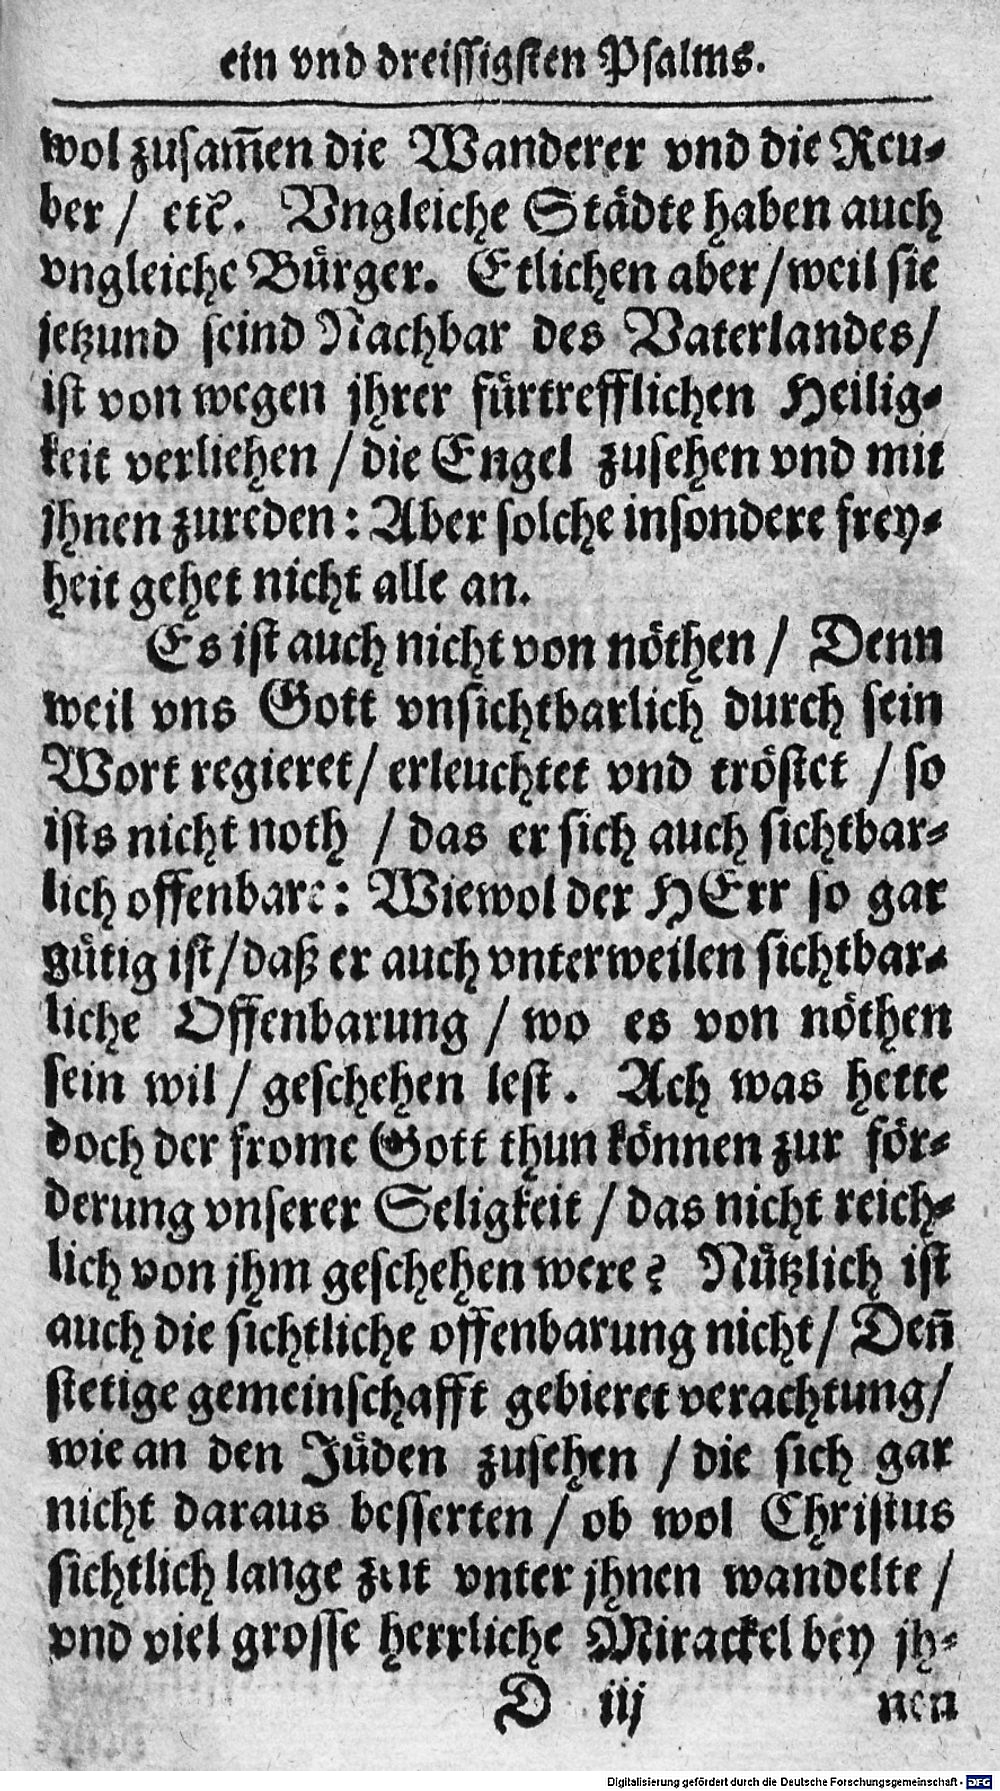 ein vnd dreissigsten Psalms.
wol zusam̄en die Wanderer vnd die Reu-
ber / etc̃. Vngleiche Städte haben auch
vngleiche Bürger. Etlichen aber / weil sie
jetzund seind Nachbar des Vaterlandes /
ist von wegen jhrer fürtrefflichen Heilig-
keit verliehen / die Engel zusehen vnd mit
jhnen zureden : Aber solche insondere frey-
heit gehet nicht alle an.
Es ist auch nicht von nöthen / Denn
weil vns Gott vnsichtbarlich durch sein
Wort regieret / erleuchtet vnd tröstet / so
ists nicht noth / das er sich auch sichtbar-
lich offenbare : Wiewol der HErr so gar
gütig ist / daß er auch vnterweilen sichtbar-
liche Offenbarung / wo es von nöthen
sein wil / geschehen lest. Ach was hette
doch der frome Gott thun können zur för-
derung vnserer Seligkeit / das nicht reich-
lich von jhm geschehen were? Nützlich ist
auch die sichtliche offenbarung nicht / Den̄
stetige gemeinschafft gebieret verachtung /
wie an den Jüden zusehen / die sich gar
nicht daraus besserten / ob wol Christus
sichtlich lange zeit vnter jhnen wandelte /
vnd viel grosse herrliche Mirackel bey jh-
D iij nen
Digitalisierung gefördert durch die Deutsche Forschungsgemeinschaft - DFG